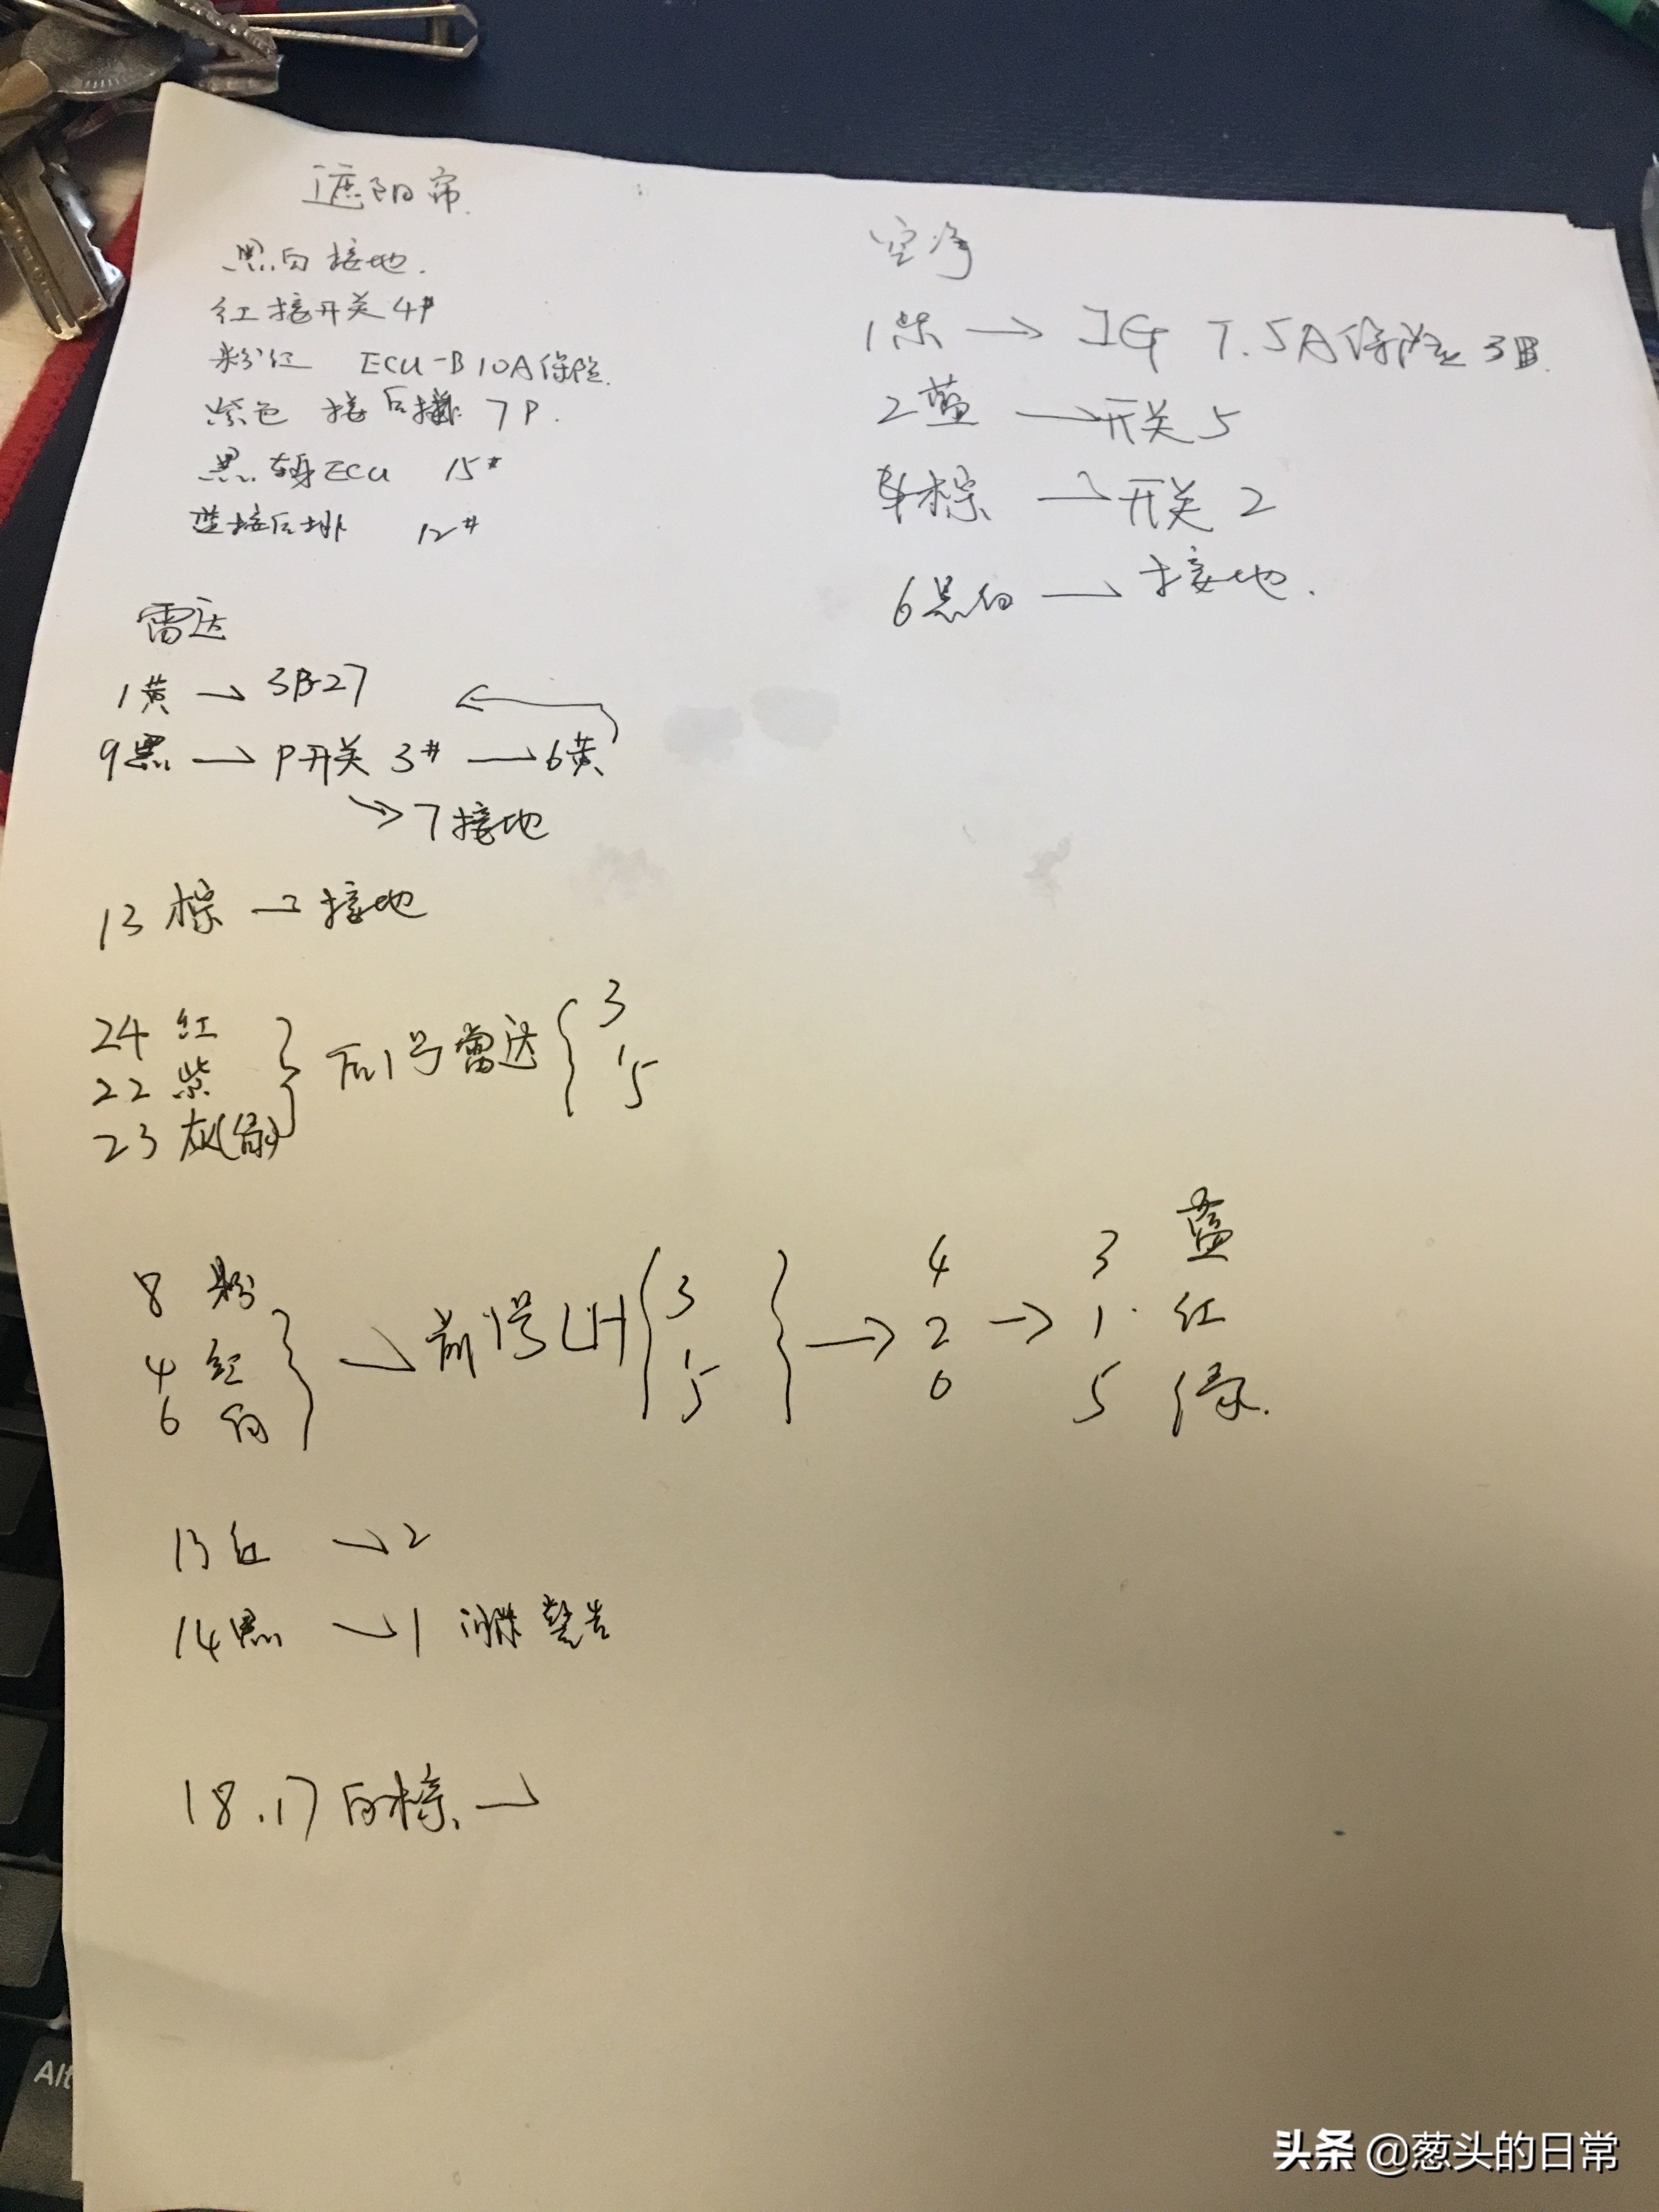 遮阳帘
黑白接地.
红接开关4#
粉红 ECU-B 10A保险.
紫色 接后 7P.
黑 车身ECU 15#
蓝接后排 12#
空净
1紫→IG 7.5A保险 3B.
2蓝→开关5
4棕→开关2
6黑白→接地.
雷达
1黄→3B-27
9黑→P开关 3#→6黄
→7接地
13棕→接地
24 红
22 紫
23 灰
后1号雷达
3
1
5
8 粉
4 红
6 白
→前1号LH
3
1
5
→
4
2
6
→
3 蓝
1. 红
5 绿.
13红→2
14黑→1 警告
18.17白棕.→
Alt
头条 @葱头的日常